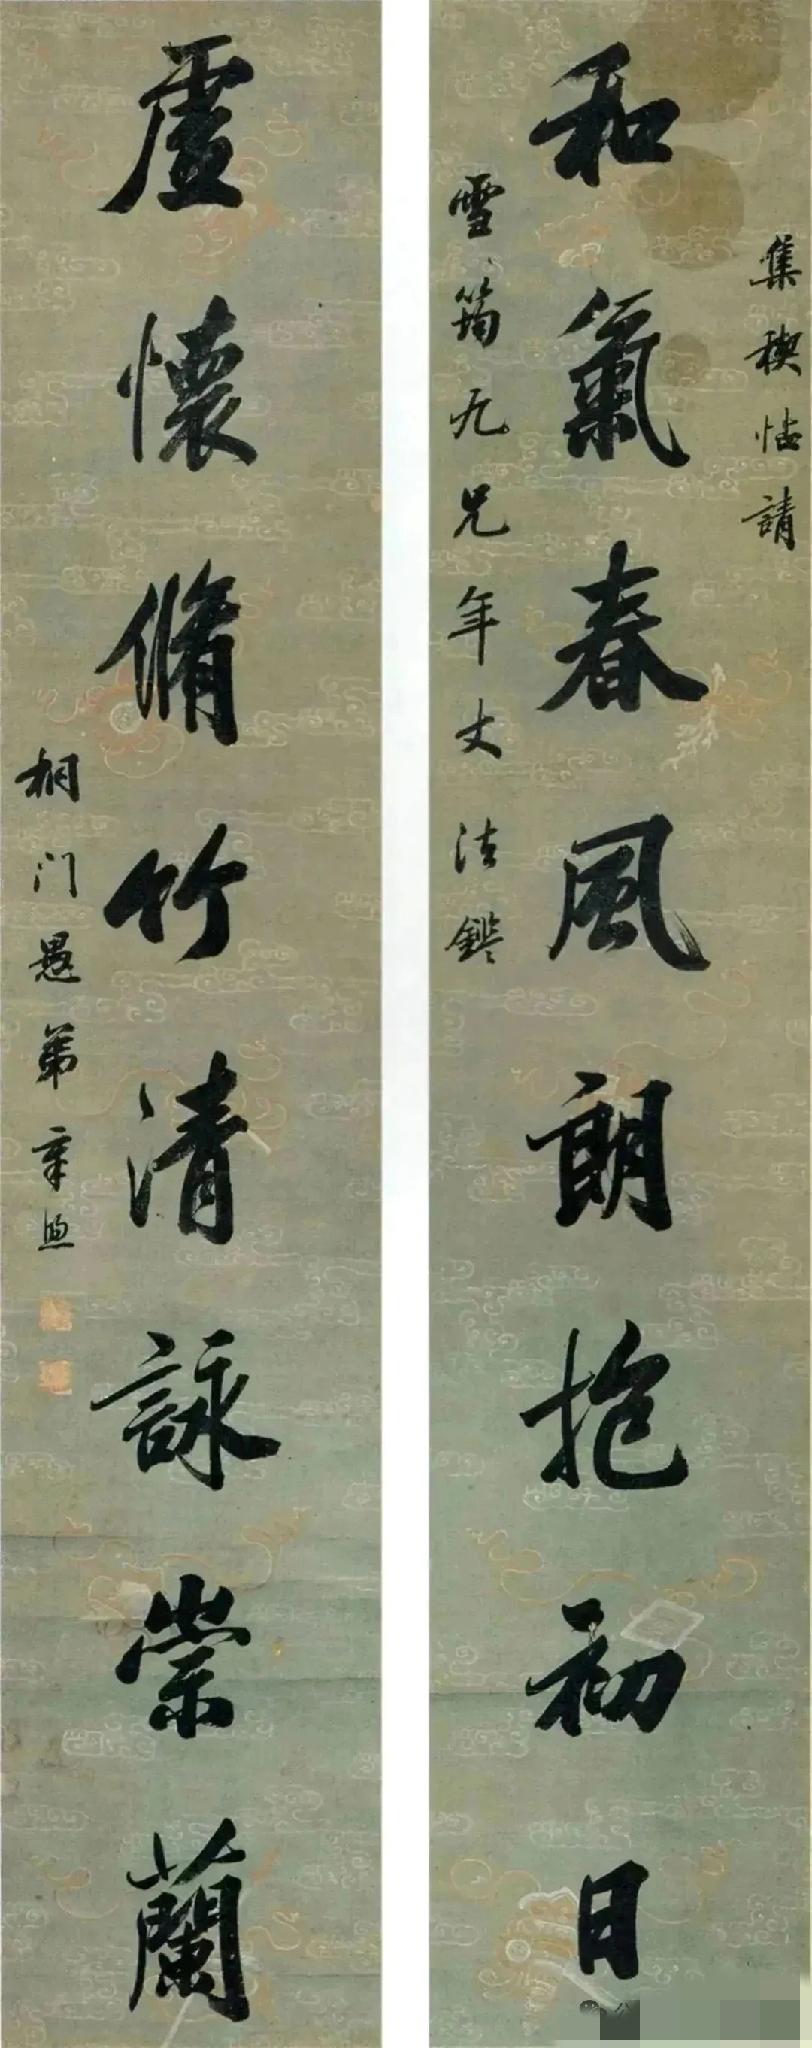 集稧帖請
和氣春風朗抱初日
雪筠九兄年丈法鑑
虛懷脩竹清詠崇蘭
桐門愚弟章煦